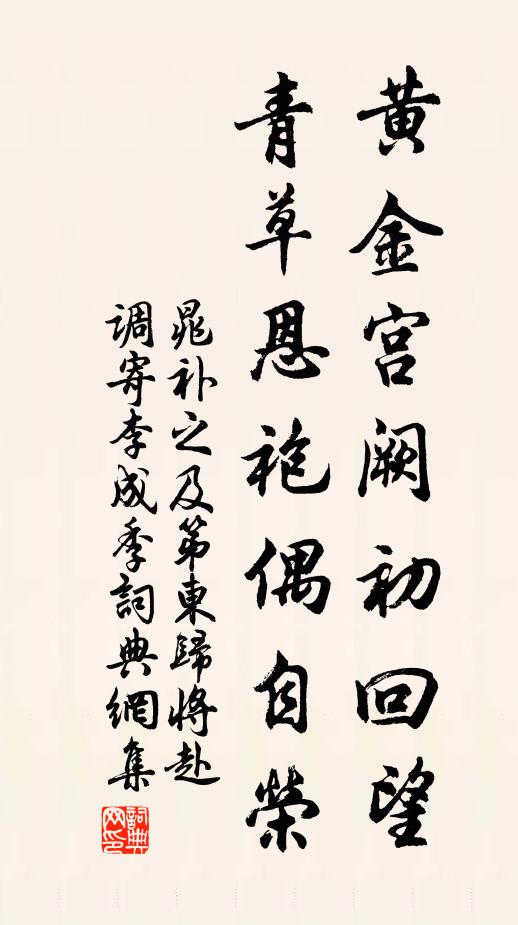 黄金宫阙初回望
青草恩袍偶自榮
晁补之及第東歸將赴
调寄李成季詞典網集
詞典网印